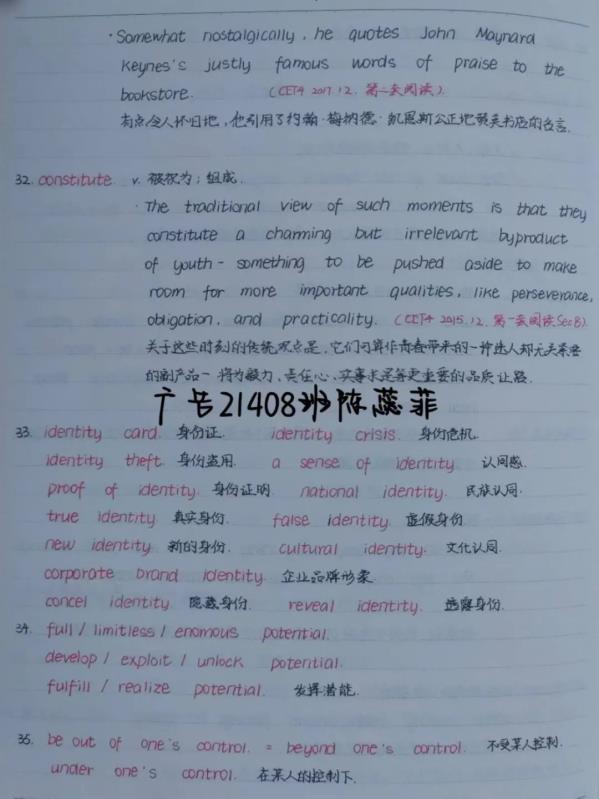 · Somewhat nostalgically, he quotes John Maynard
Keynes's justly famous words of praise to the
bookstore. (CET4 2017.12. 第二套阅读).
有点令人怀旧地, 他引用了约翰·梅纳德·凯恩斯公正地赞美书店的名言.
32. constitute v. 被视为; 组成.
· The traditional view of such moments is that they
constitute a charming but irrelevant byproduct
of youth - something to be pushed aside to make
room for more important qualities, like perseverance,
obligation, and practicality. (CET4 2015.12. 第一套阅读Sec B).
关于这些时刻的传统观点是, 它们可算作青春带来的一种迷人却无关紧要
的副产品 - 将为毅力, 责任心, 实事求是等更重要的品质让路.
广告21408班陈蕊菲
33. identity card. 身份证. identity crisis. 身份危机.
identity theft. 身份盗用. a sense of identity. 认同感.
proof of identity. 身份证明. national identity. 民族认同.
true identity. 真实身份. false identity. 虚假身份.
new identity. 新的身份. cultural identity. 文化认同.
corporate brand identity. 企业品牌形象.
concel identity. 隐藏身份. reveal identity. 透露身份.
34. full / limitless / enomous potential.
develop / exploit / unlock potential.
fulfill / realize potential. 发挥潜能.
35. be out of one's control. = beyond one's control. 不受某人控制.
under one's control. 在某人的控制下.